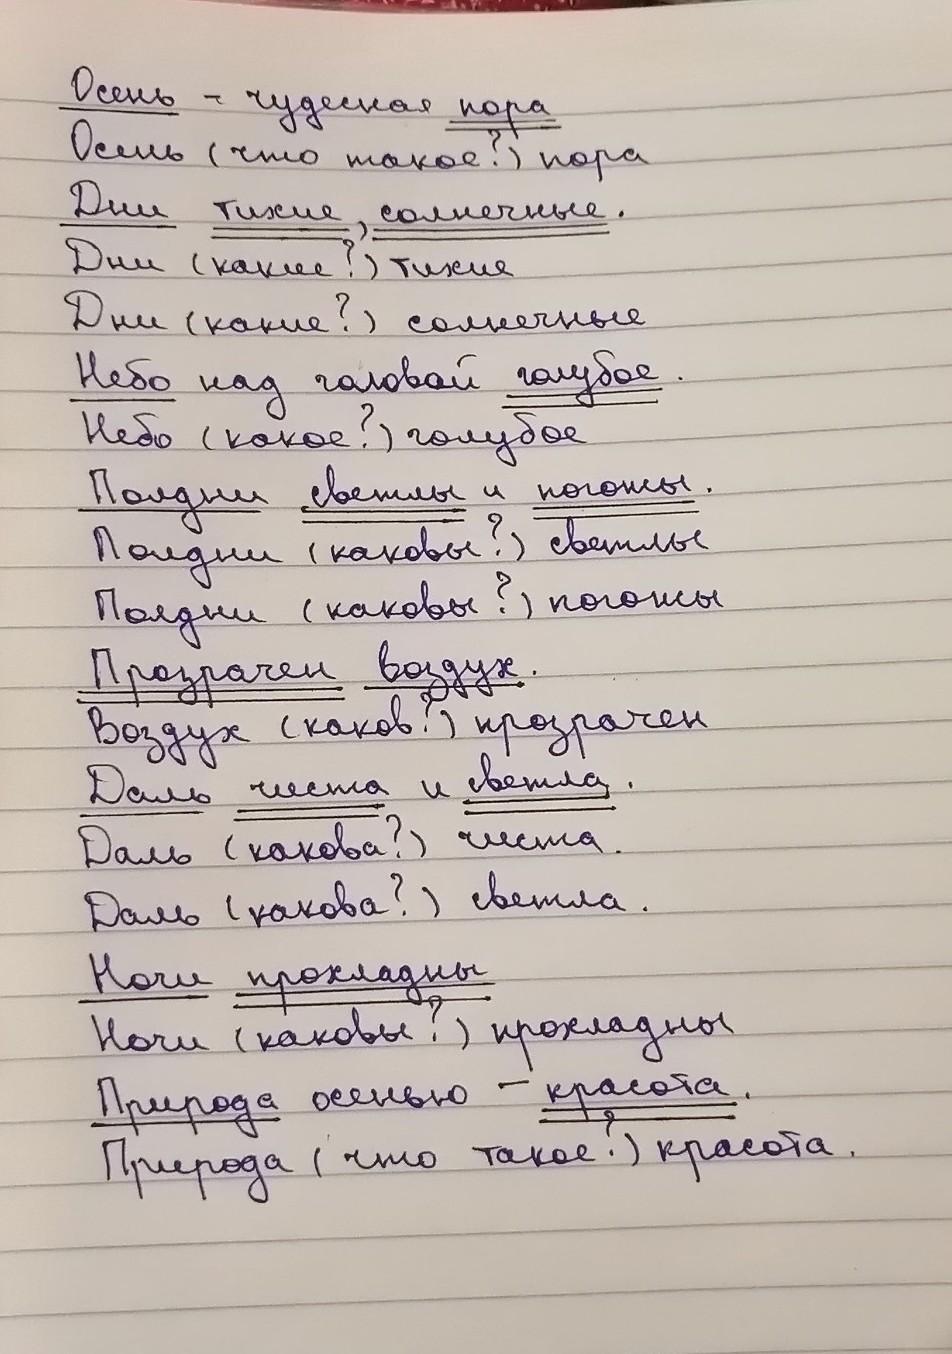 Осень - чудесная пора
Осень (что такое?) пора
Дни тихие, солнечные.
Дни (какие?) тихие
Дни (какие?) солнечные
Небо над головой голубое.
Небо (какое?) голубое
Полдни светлы и погожи.
Полдни (каковы?) светлы
Полдни (каковы?) погожи
Прозрачен воздух.
Воздух (каков?) прозрачен
Даль чиста и светла.
Даль (какова?) чиста.
Даль (какова?) светла.
Ночи прохладны
Ночи (каковы?) прохладны
Природа осенью - красота.
Природа (что такое?) красота.